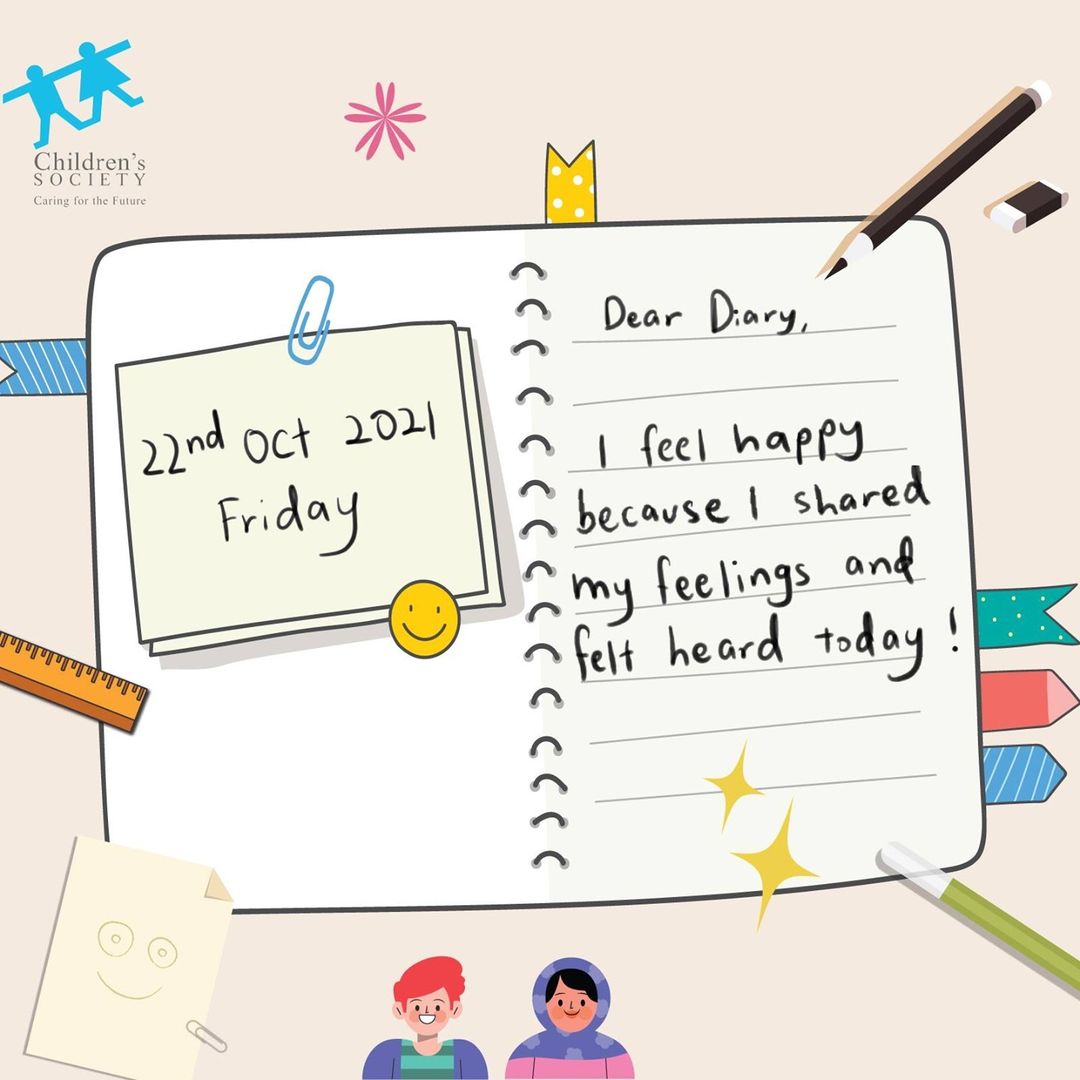 Children's
SOCIETY
Caring for the Future
22nd Oct 2021
Friday
Dear Diary,
I feel happy
because I shared
my feelings and
felt heard today!